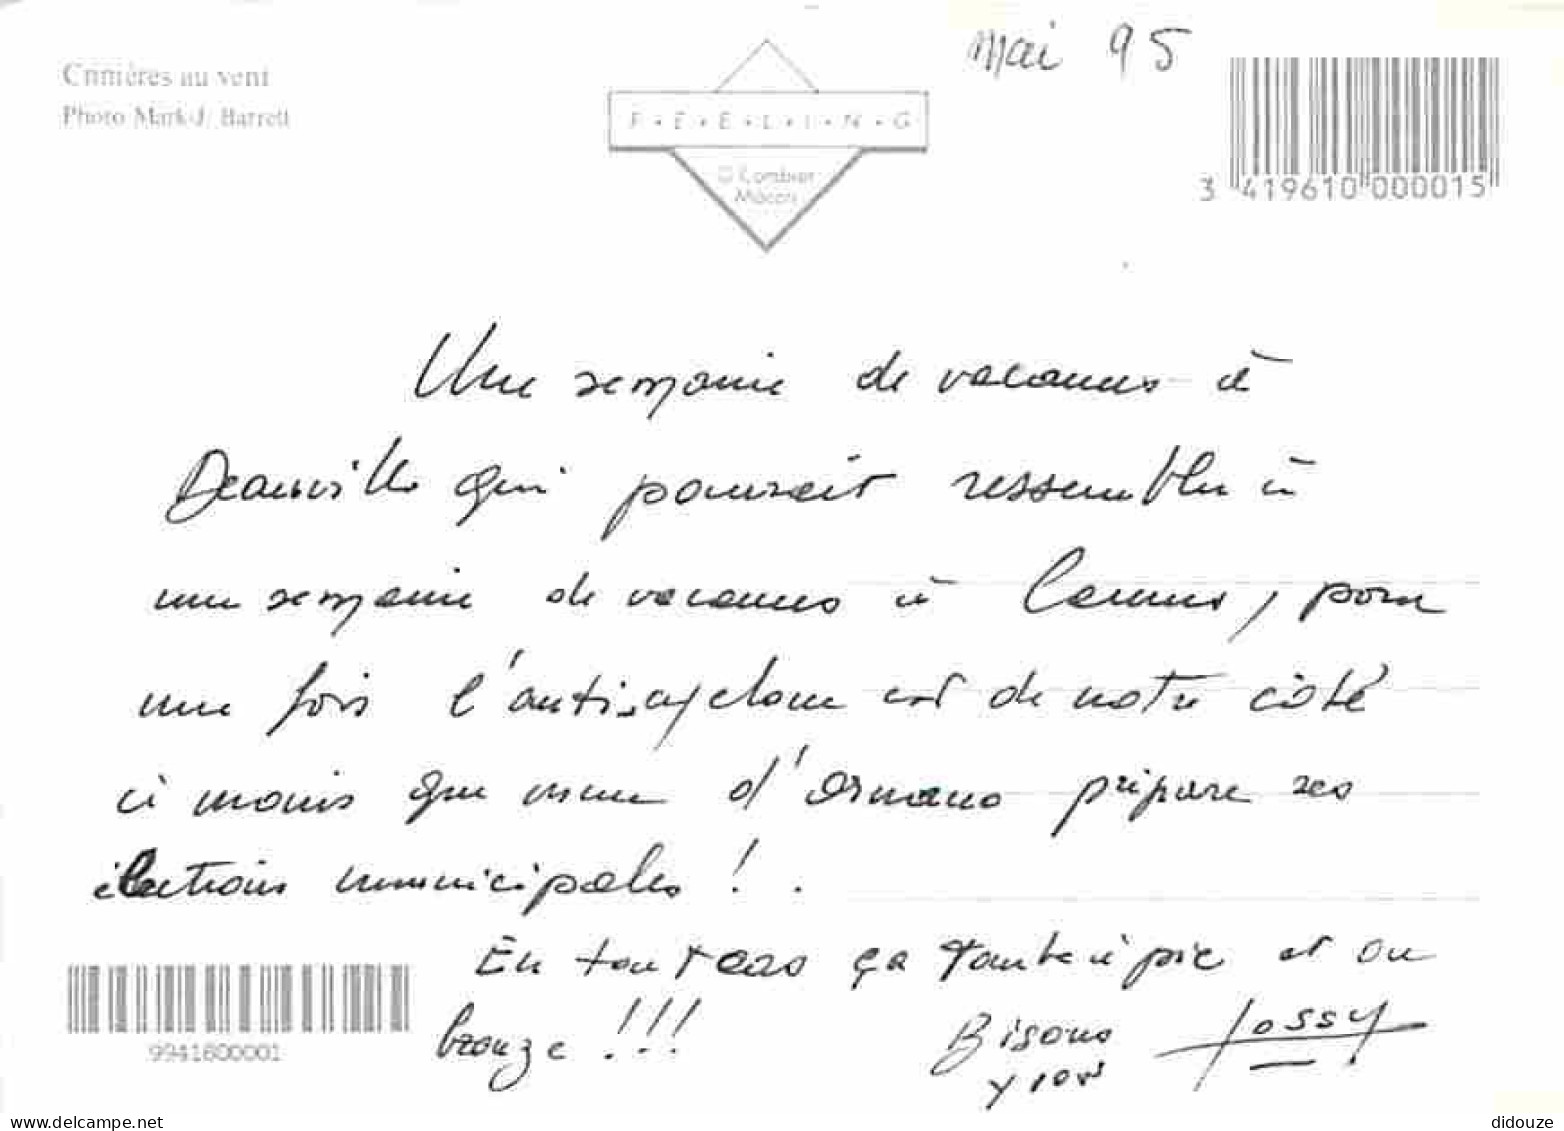 mai 95
Crinières au vent
Photo Mark-J. Barrett
F.E.E.L.I.N.G
© Combier
Mâcon
3 419610 000015
Une semaine de vacances à
Deauville qui pourrait ressembler à
une semaine de vacances à Cannes, pour
une fois l'anticyclone est de notre côté
à moins que mme d'Ornano prépare ses
élections municipales ! .
En tout cas ça tombe à pic et on
bronze !!!
Bisous Jossy
9941600001
www.delcampe.net
didouze